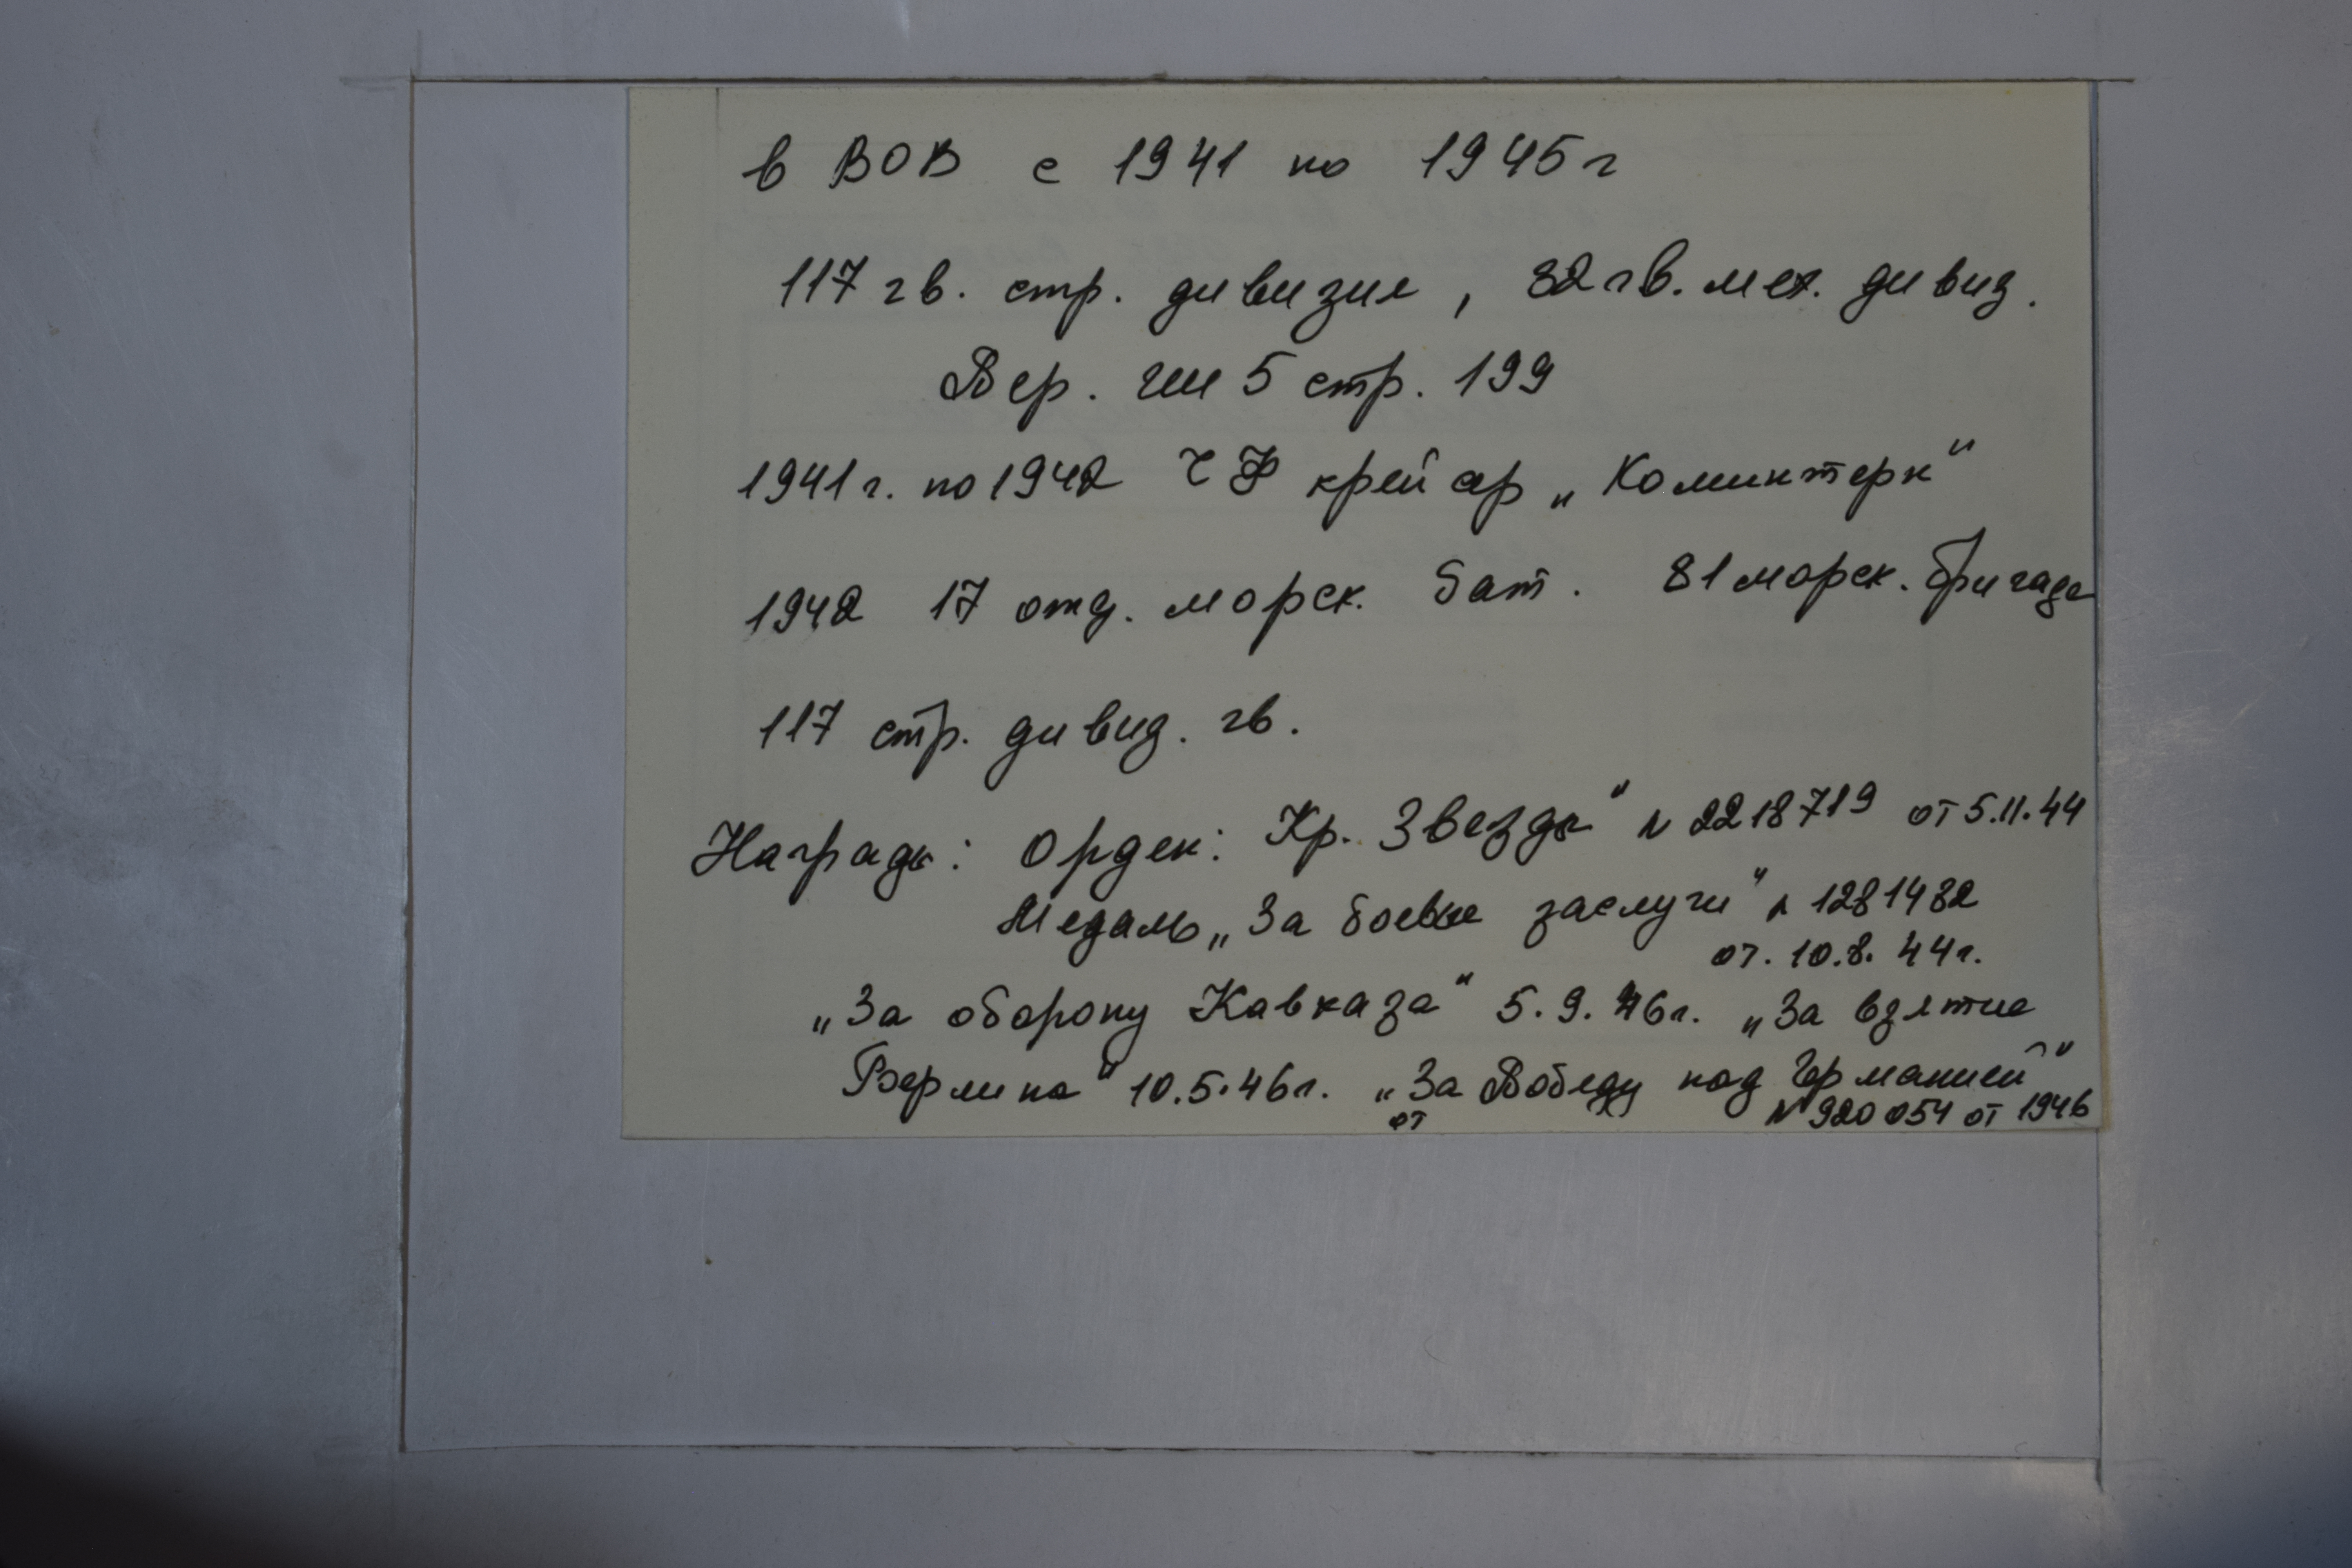 в ВОВ с 1941 по 1945 г
117 гв. стр. дивизия, 82 гв. мех. дивиз.
Вер. 5 стр. 199
1941 г. по 1942 ЧФ крейсер „Коминтерн"
1942 17 отд. морск. бат. 81 морск. бригада
117 стр. дивид. гв.
Награды: Орден: Кр. Звезды" N 2218719 от 5.11.44
Медаль „За боевые заслуги" N 1281482
от. 10.8. 44 г.
„За оборону Кавказа" 5.9.46 г. „За взятие
Берлина" 10.5.46 г. „За Победу над Германией"
от N 920054 от 1946